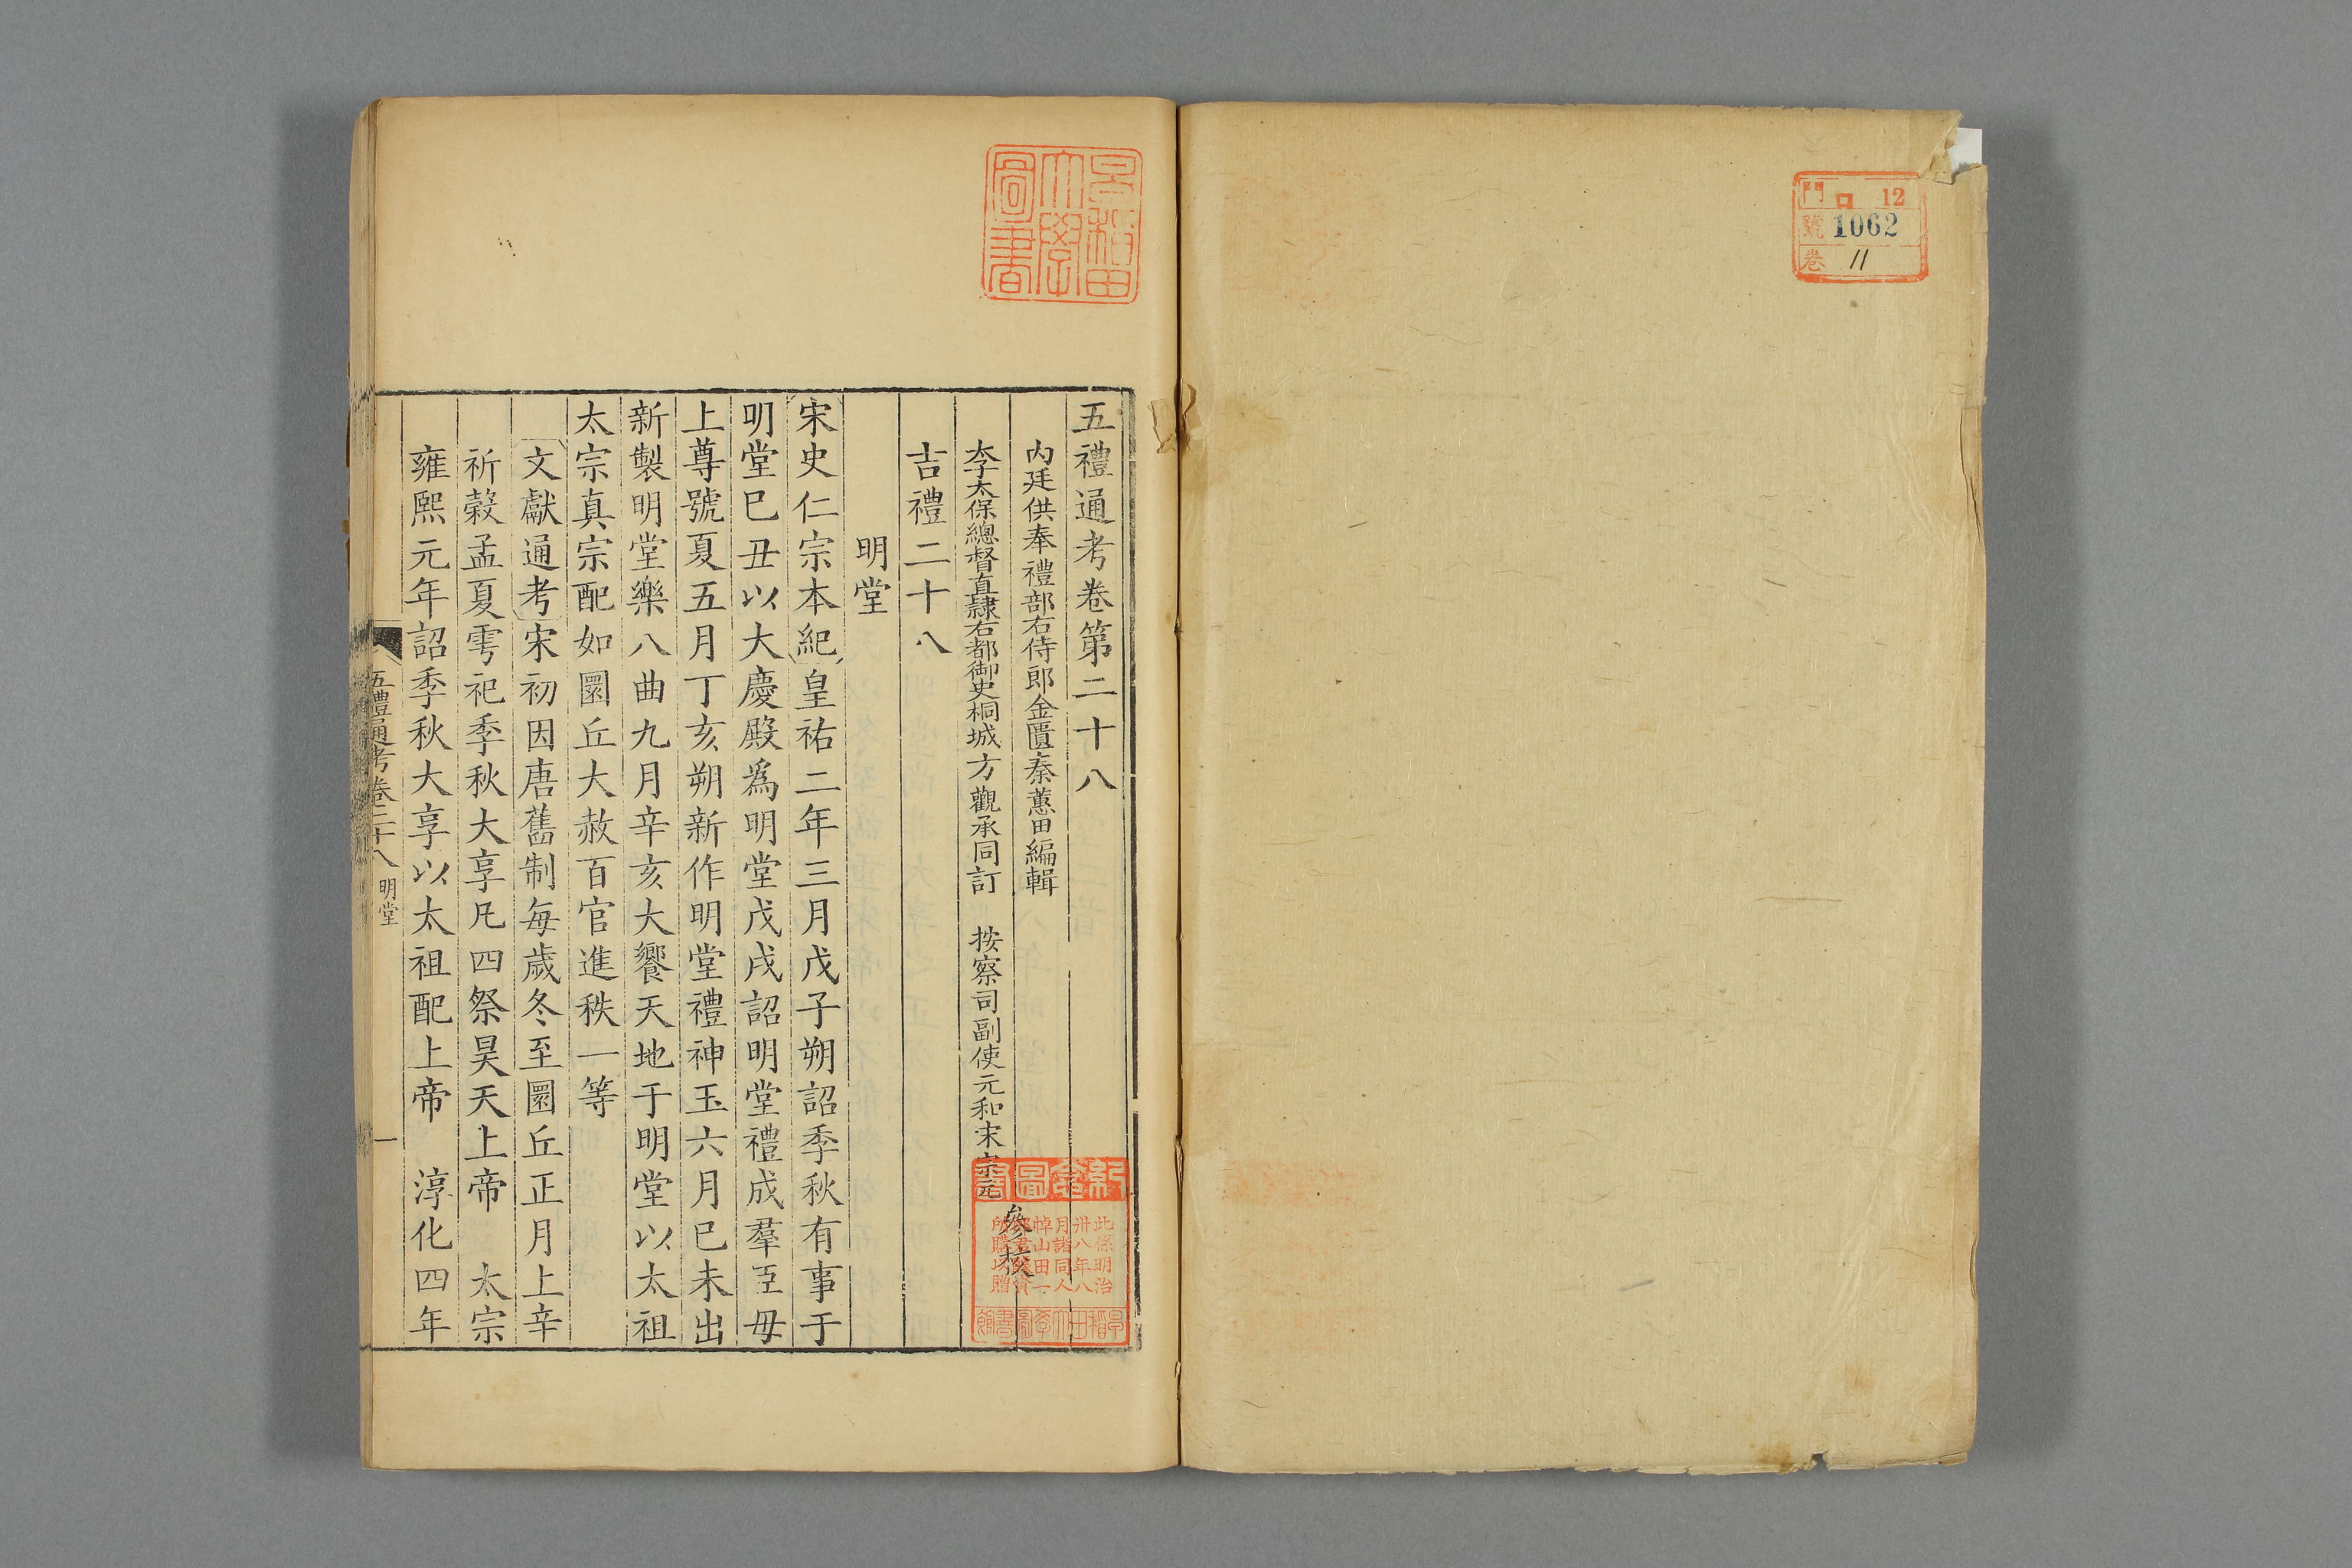 門 口 12
號 1062
卷 11
早稲田大學圖書
五禮通考卷第二十八
內廷供奉禮部右侍郎金匱秦蕙田編輯
李太保總督直隸右都御史桐城方觀承同訂 按察司副使元和宋宗元
參校
吉禮二十八
明堂
宋史仁宗本紀皇祐二年三月戊子朔詔季秋有事于
明堂巳丑以大慶殿爲明堂戊戌詔明堂禮成羣臣毋
上尊號夏五月丁亥朔新作明堂禮神玉六月巳未出
新製明堂樂八曲九月辛亥大饗天地于明堂以太祖
太宗真宗配如圜丘大赦百官進秩一等
文獻通考宋初因唐舊制每歲冬至圜丘正月上辛
祈穀孟夏雩祀季秋大享凡四祭昊天上帝 太宗
雍熙元年詔季秋大享以太祖配上帝 淳化四年
五禮通考卷二十八 明堂 一
紀念圖書
此係明治
卅八年八
月諸同人
悼山田一
所購以贈
早稲田大學圖書館